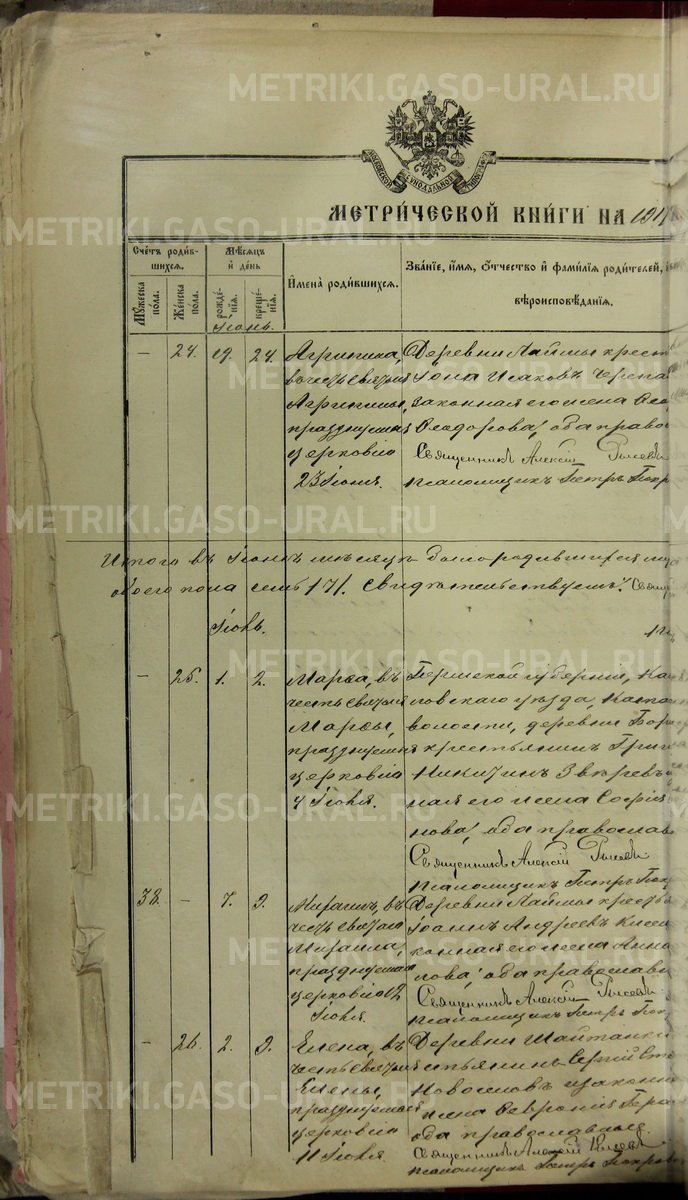 METRIKI.GASO-URAL.RU
МЕТРИ́ЧЕСКОЙ КНИ́ГИ НА 191
Счетъ роди́вшихся.
Мужеска пола.
Женска пола.
Мѣсяцъ и день
рождéнія.
крещéнія.
Имена роди́вшихся.
Зва́ніе, имя, отчество и фами́лія роди́телей,
вѣроисповѣданія.
Іюнь.
— 24. 19. 24.
Агрипина,
въ честь святыя
Агрипины,
празднуемыя
церковію
23 Іюня.
Деревни Лаймы крест
Іона Исаковъ
законная его жена
Ѳеодорова, оба право
Священникъ Алексій
псаломщикъ Петръ Покр
Итого въ Іюнѣ мѣсяцѣ было родившихся
обоего пола семь /7/. Свидѣтельствуемъ: Свящ
Іюль.
— 25. 1. 2.
Марѳа, въ
честь святыя
Марѳы,
празднуемыя
церковію
4 Іюля.
Пермской губерніи,
ловскаго уѣзда,
волости, деревни Бор
крестьянинъ Григ
Никитинъ Звѣревъ
ная его жена Софія
нова, оба православ
Священникъ Алексій
Псаломщикъ Петръ Покр
38. — 7. 9.
Михаилъ, въ
честь святаго
Михаила,
празднуемаго
церковію 12
Іюля.
Деревни Лаймы кресть
Іоаннъ Андреевъ
конная его жена Анна
лова, оба православ
Священникъ Алексій
Псаломщикъ Петръ Покр
— 26. 2. 9.
Елена, въ
честь святыя
Елены,
празднуемыя
церковію
11 Іюля.
Деревни Шайтанки
естьянинъ Сергій
Новоселовъ и закон
жена Ѳевронія Гера
оба православные.
Священникъ Алексій
псаломщикъ Петръ Покров